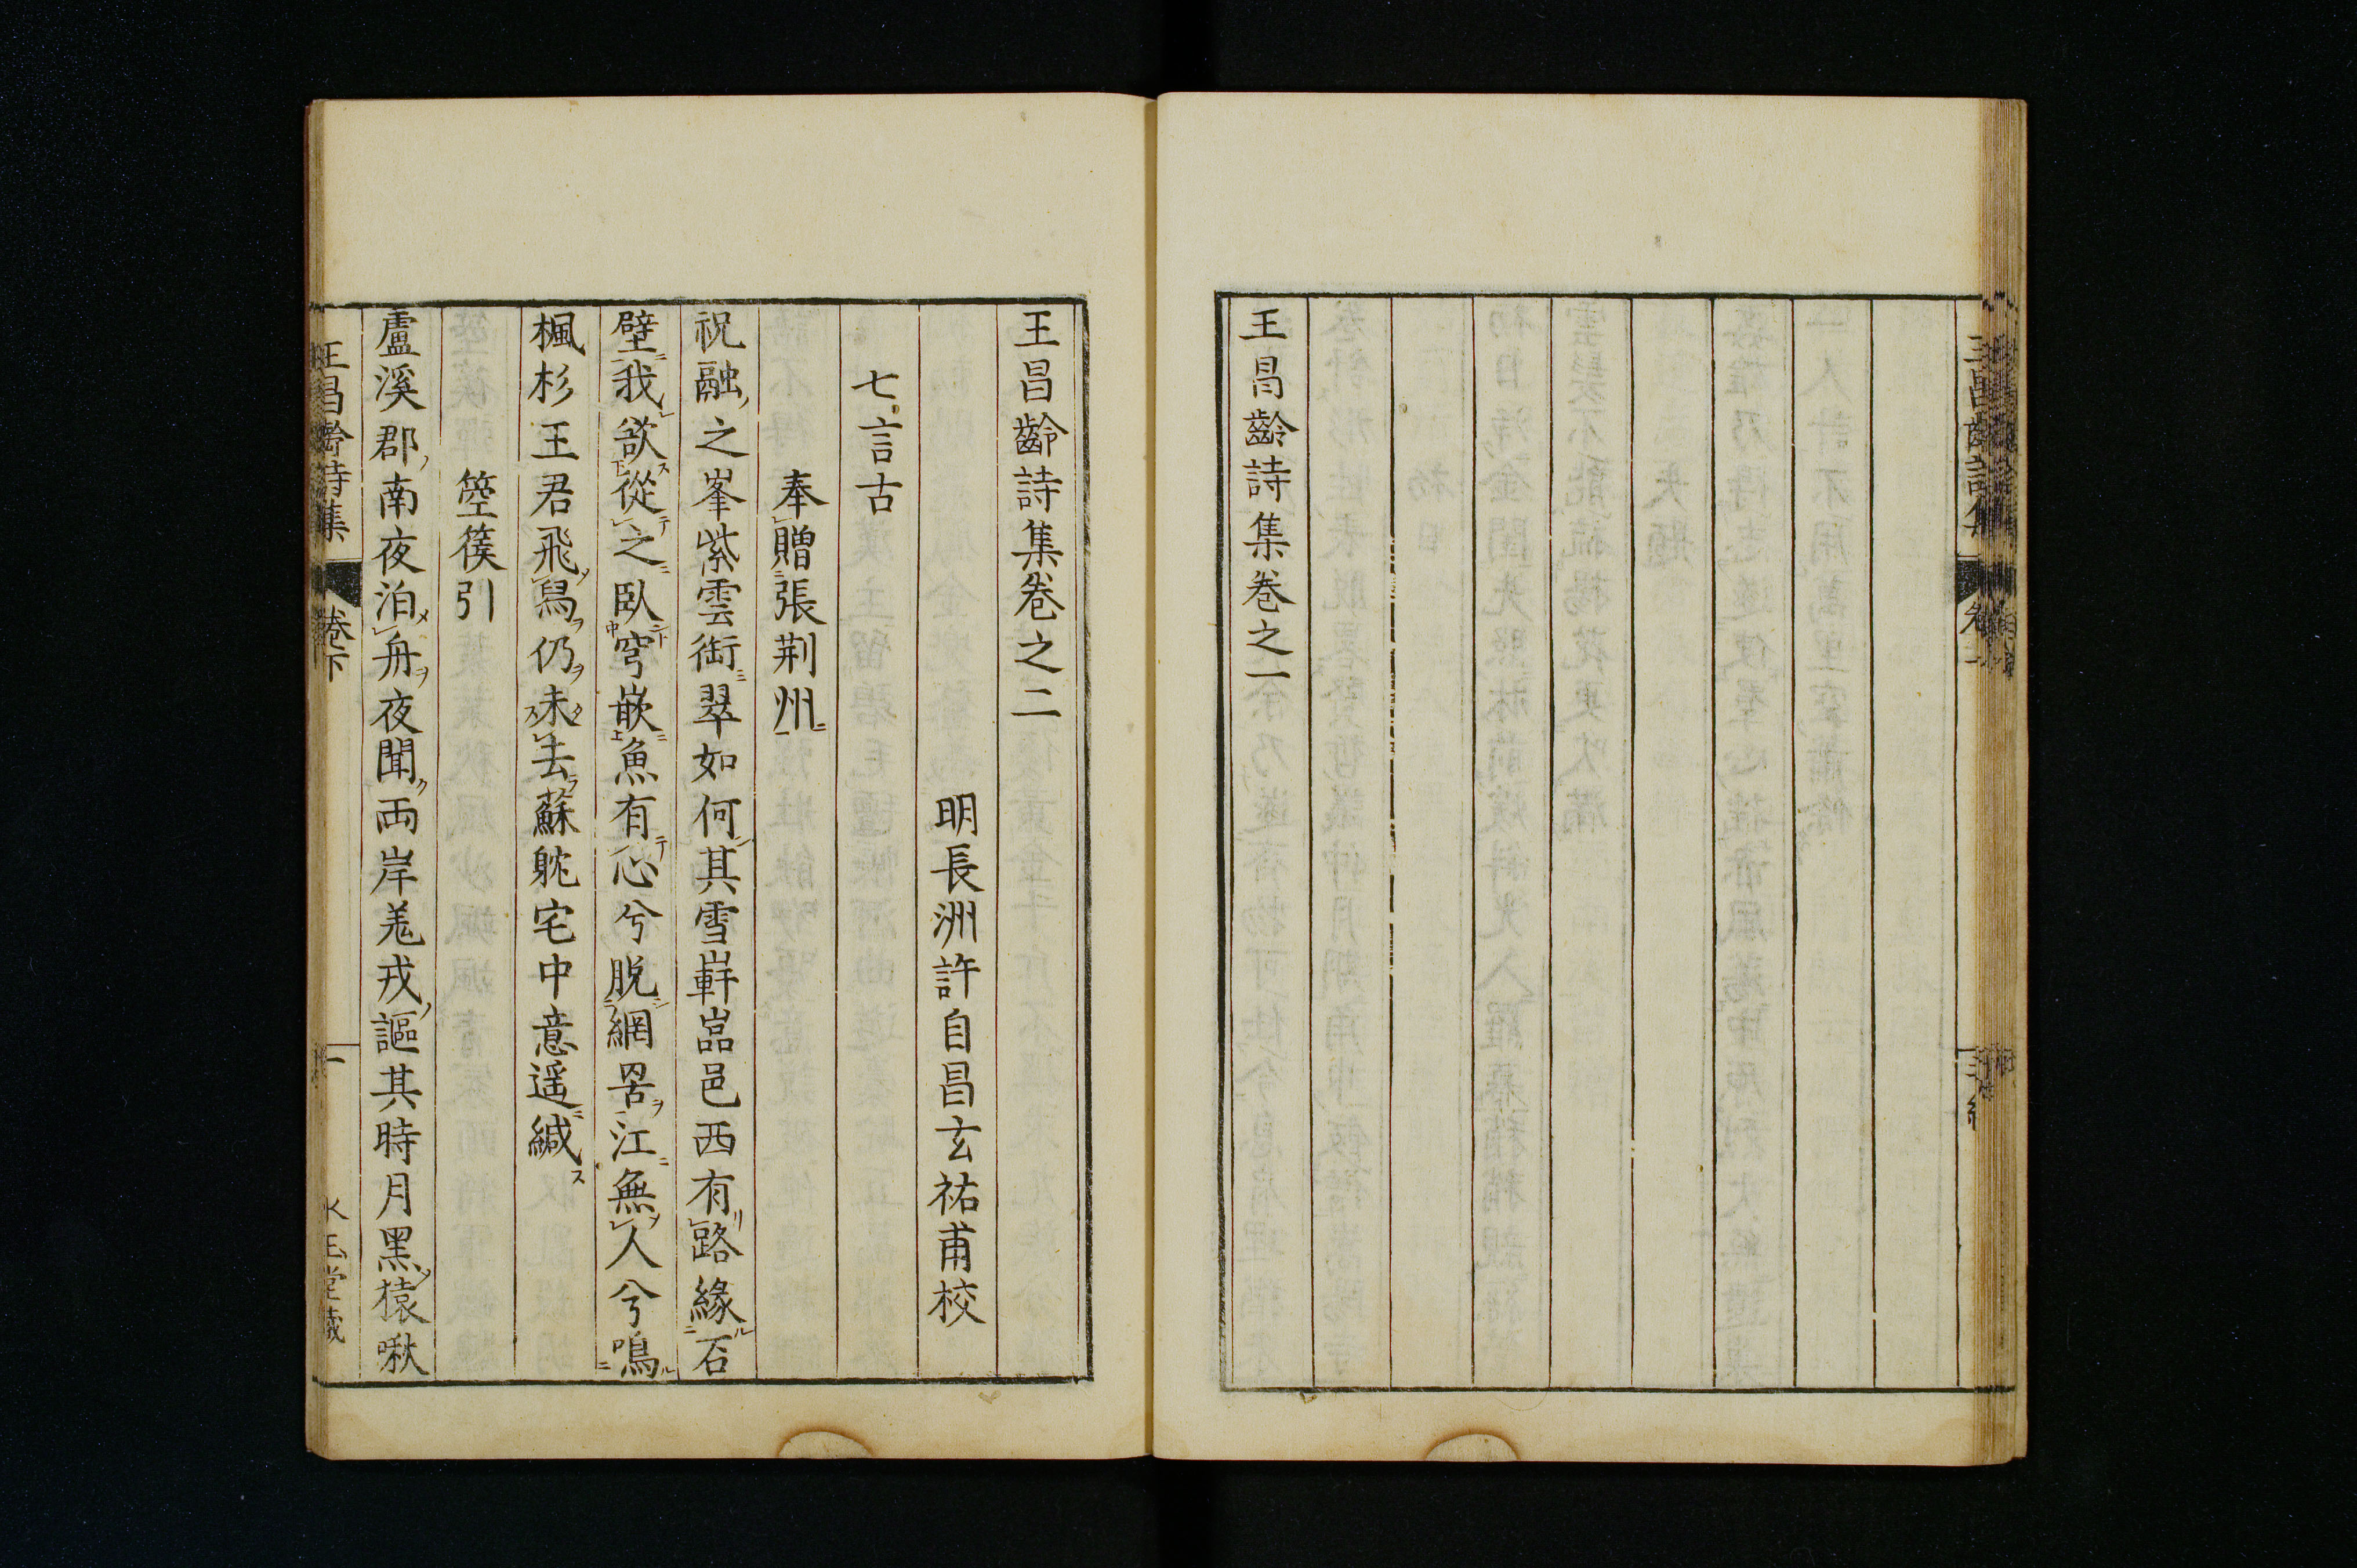 王昌齡詩集卷之一
王昌齡詩集卷之二
明長洲許自昌玄祐甫校
七言古
奉贈張荆州
祝融之峯紫雲銜翠如何其雪嶄嵓邑西有路緣石
壁我欲從之臥穹嵌魚有心兮脱網罟江無人兮鳴
楓杉王君飛舄仍未去蘇躭宅中意遥緘
箜篌引
盧溪郡南夜泊舟夜聞両岸羗戎謳其時月黑猿啾
王昌齡詩集 卷下 一